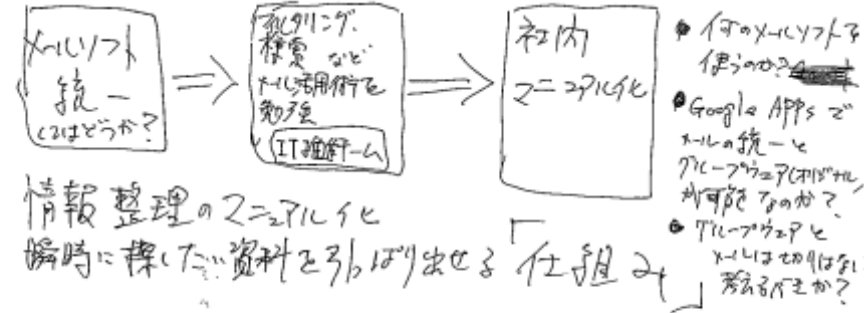 メールソフト
統一
してはどうか？
フィルタリング、
検索 など
メール活用術を
勉強会
IT推進チーム
社内
マニュアル化
● 何のメールソフトを
使うのか？
● Google APPs で
メールの統一と
グループウェア(オリジナル)
が可能なのか？
● グループウェアと
メールは切りはなし
考えるべきか？
情報整理のマニュアル化
瞬時に探したい資料を引っぱり出せる「仕組み」